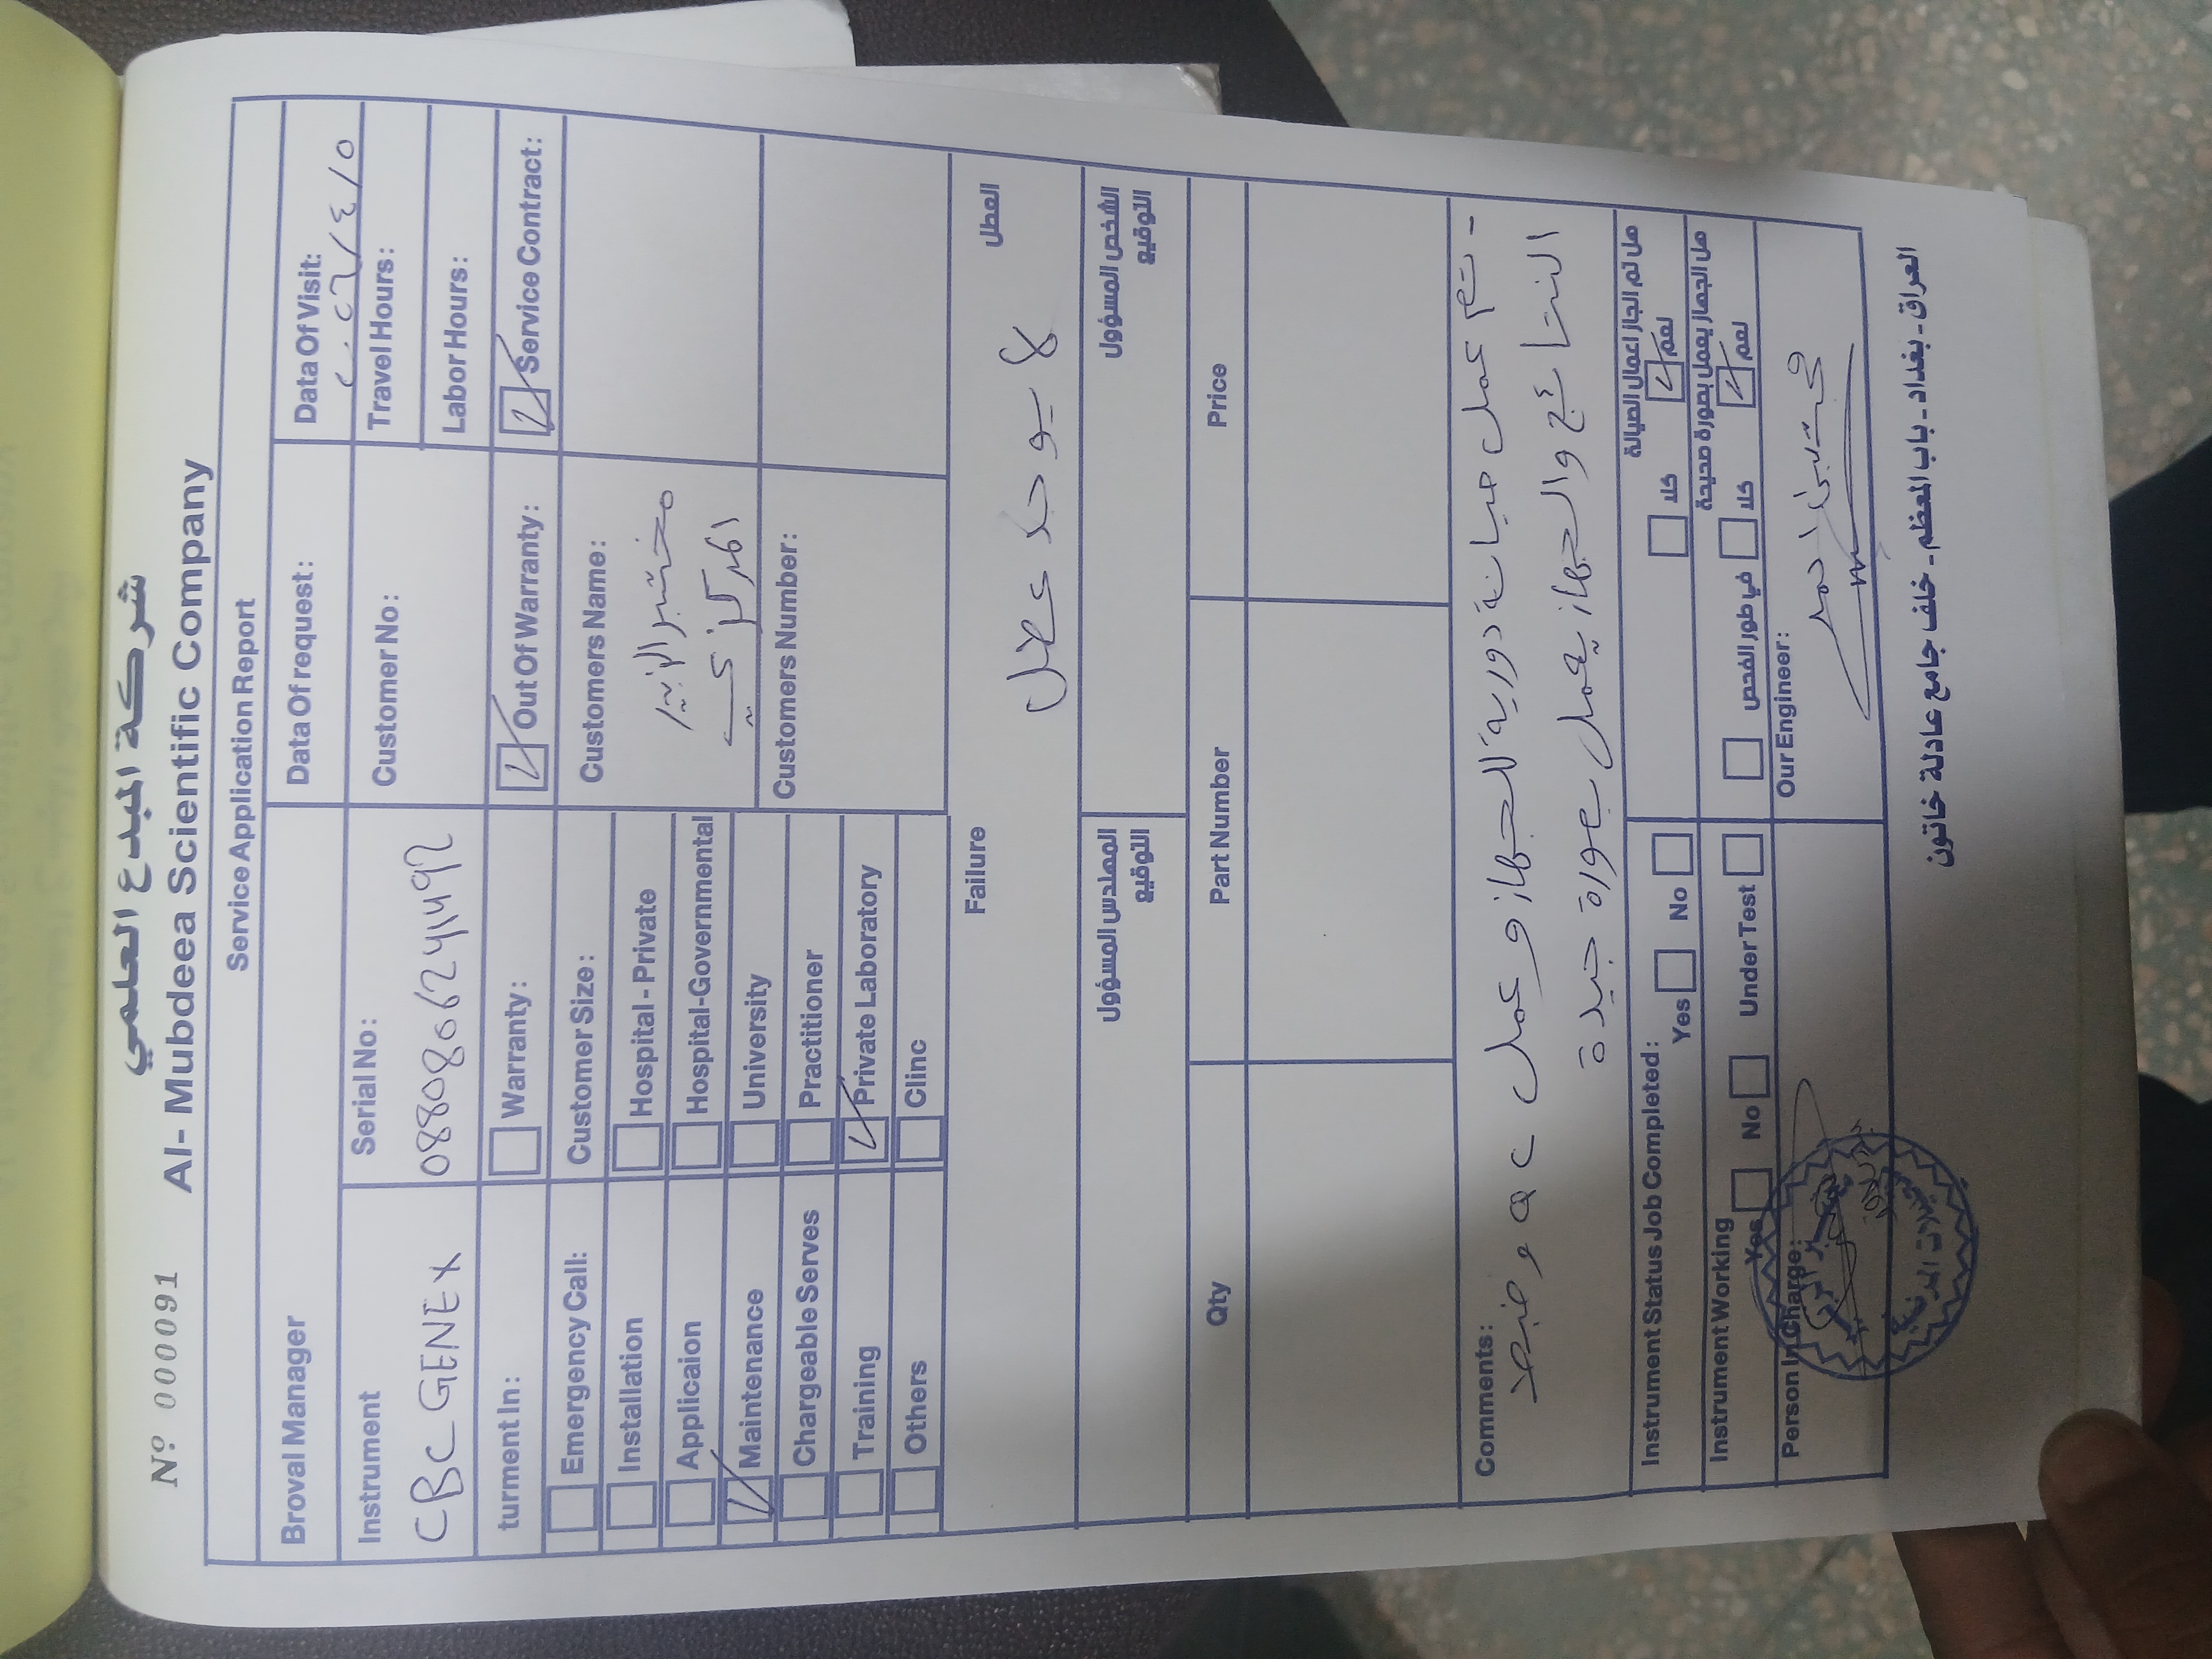 شركة المبدع العلمي
Nº 000091
Al- Mubdeea Scientific Company
Service Application Report
Broval Manager
Data Of request:
Data Of Visit:
٢٠٢٦/٤/٥
Instrument
CBC GENEX
Serial No:
Customer No:
Travel Hours:
Labor Hours:
turment In:
Warranty:
Out Of Warranty:
Service Contract:
Emergency Call:
Installation
Applicaion
Maintenance
Chargeable Serves
Training
Others
Customer Size:
Hospital - Private
Hospital-Governmental
University
Practitioner
Private Laboratory
Clinc
Customers Name:
مختبر
المركزي
Customers Number:
Failure
العطل
لا يوجد عطل
المهندس المسؤول
التوقيع
الشخص المسؤول
التوقيع
Qty
Part Number
Price
Comments:
- تم عمل صيانة دورية للجهاز و عمل QC وضبط
النتائج والجهاز يعمل بصورة جيدة
Instrument Status Job Completed:
Yes
No
هل تم انجاز اعمال الصيانة
كلا
نعم
Instrument Working
Yes
No
Under Test
هل الجهاز يعمل بصورة صحيحة
في طور الفحص
كلا
نعم
Person In Charge:
Our Engineer:
العراق - بغداد - باب المعظم - خلف جامع عادلة خاتون